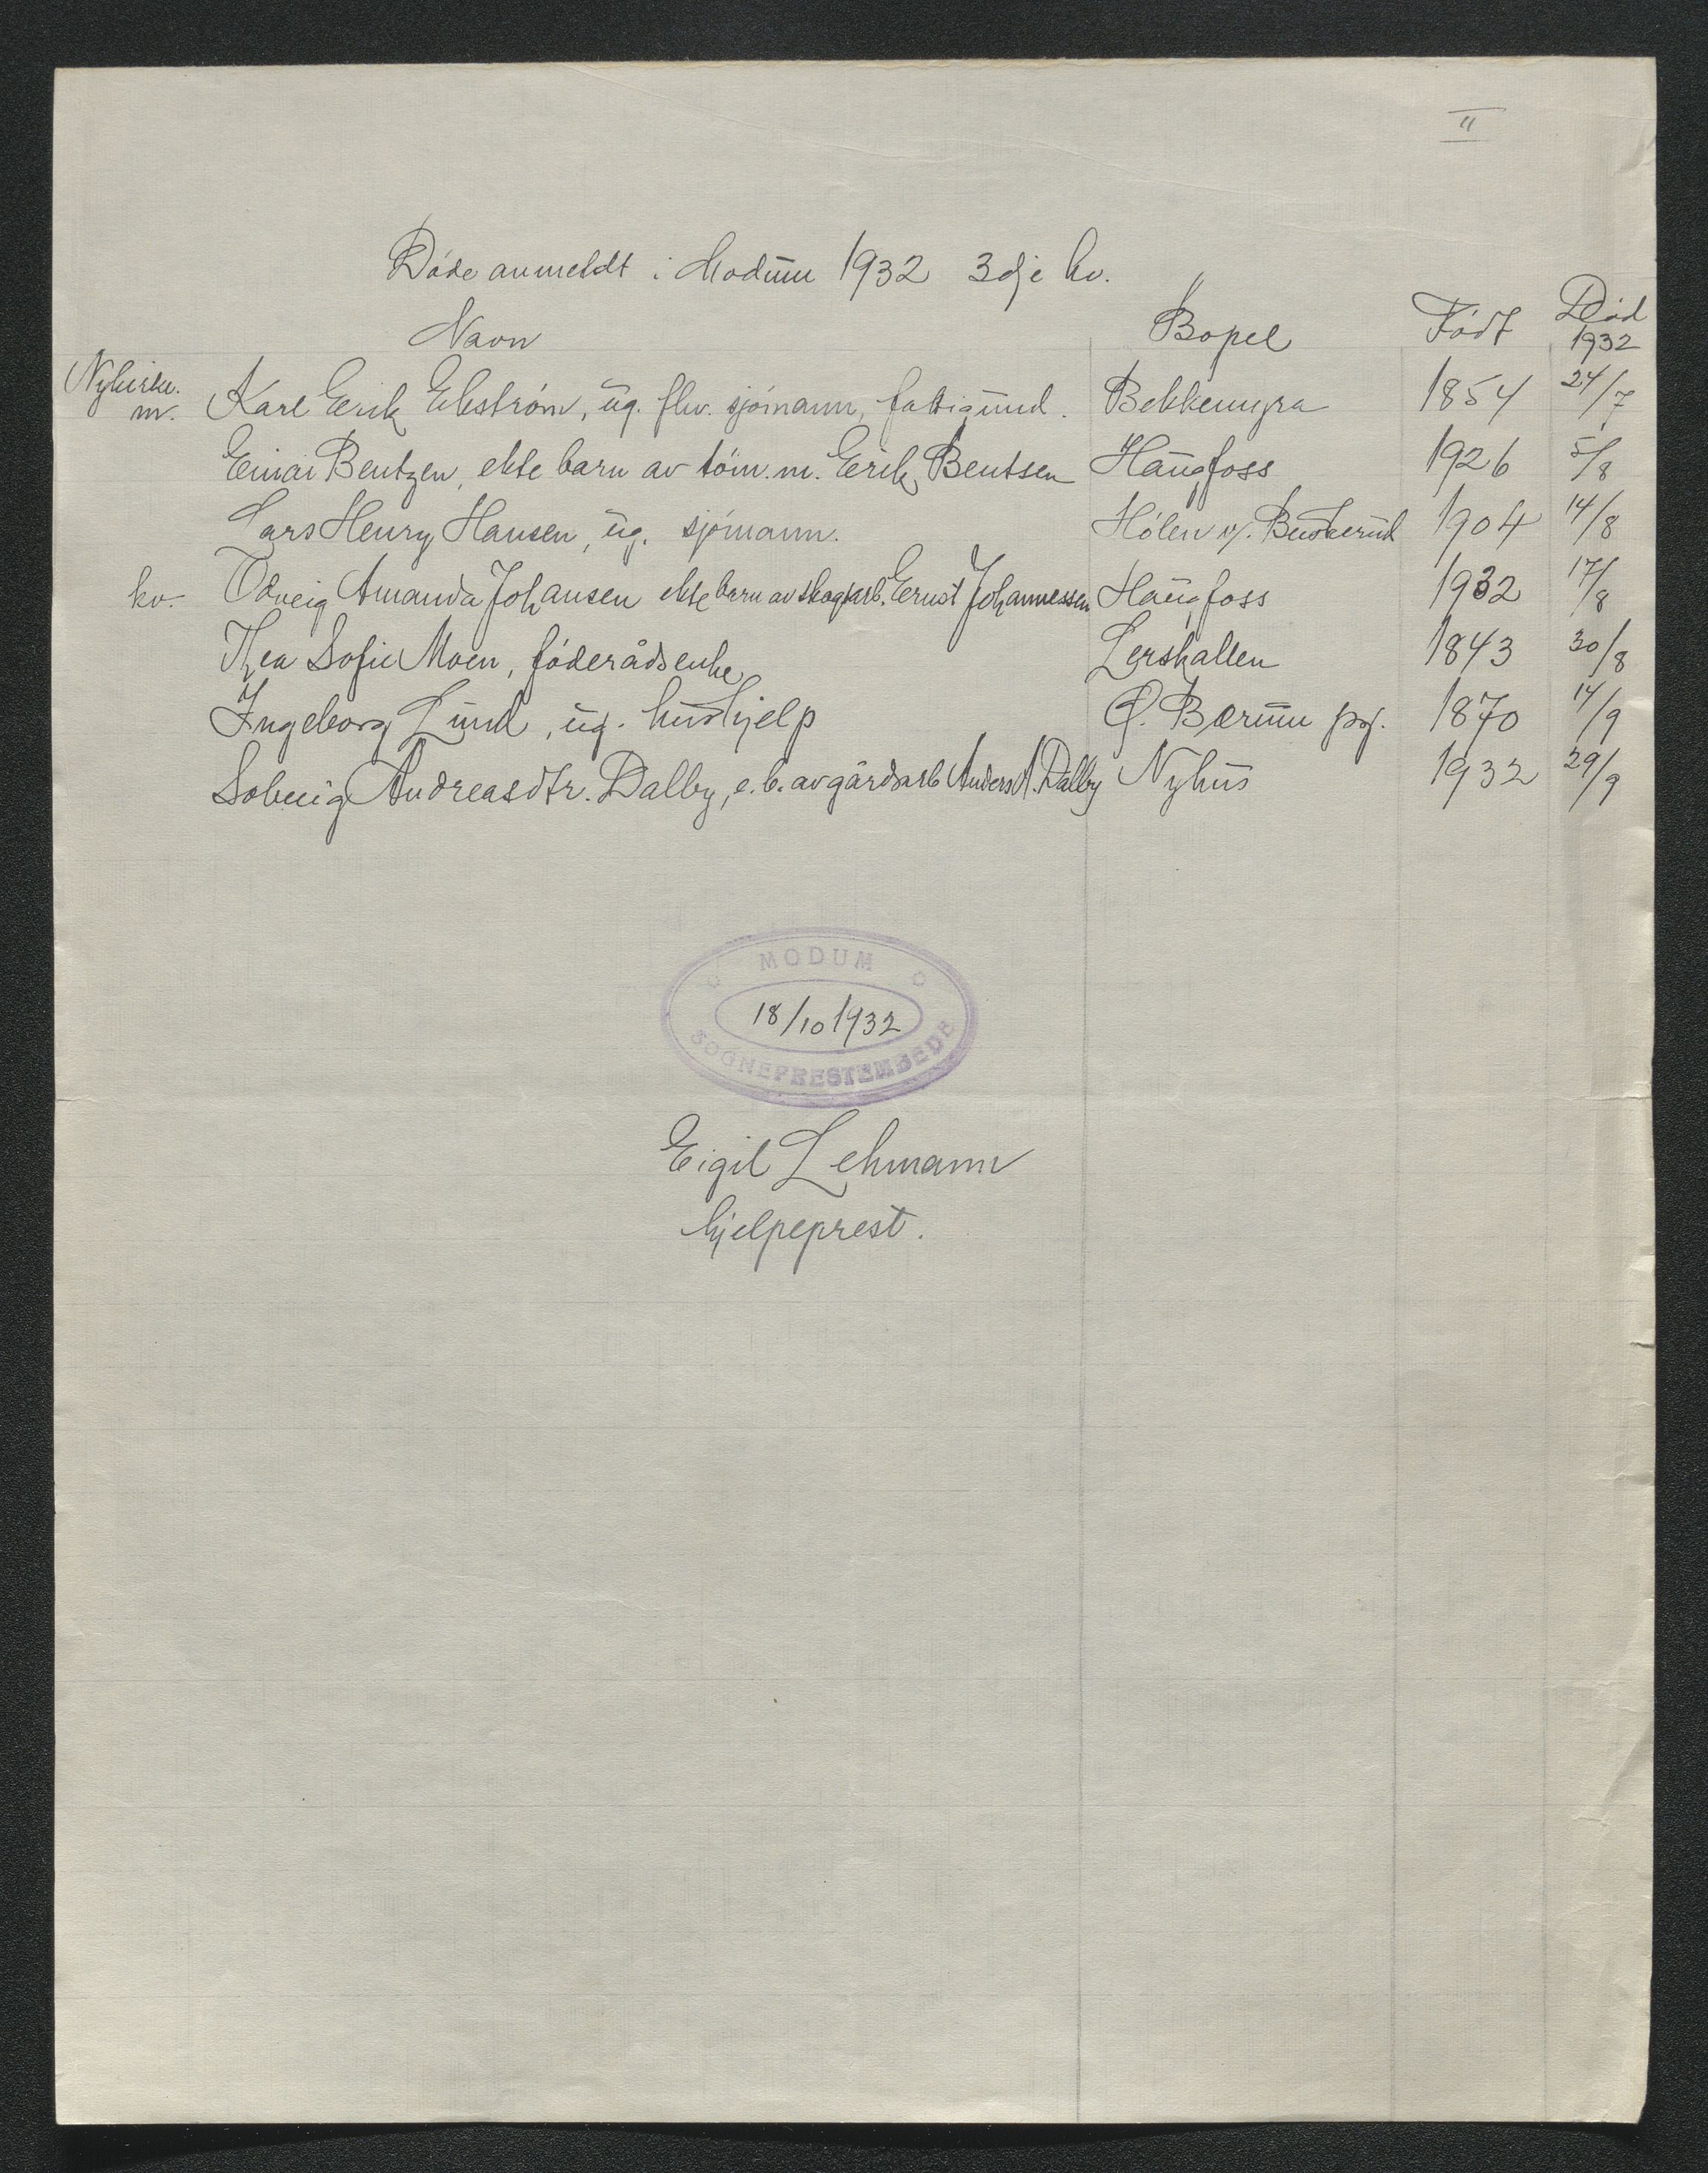 II
Døde anmeldt i Modum 1932 3dje kv.
Navn Bopel Født Død 1932
Nykirke.
m. Karl Erik Ekstrøm, ug. fhv. sjømann, fattigund. Bekkemyra 1854 24/7
Einar Bentzen, ekte barn av tøm.m. Erik Bentsen Haugfoss 1926 5/8
Lars Henry Hansen, ug. sjømann. Hølen v/. Buskerud 1904 14/8
kv. Odveig Amanda Johansen ekte barn av skogsarb. Ernst Johannessen Haugfoss 1932 17/8
Thea Sofie Moen, føderådsenke Lerskallen 1843 30/8
Ingeborg Lund, ug. hushjelp Ø. Bærum psg. 1870 14/9
Solveig Andreasdtr. Dalby, e.b. av gårdsarb Anders A. Dalby Nyhus 1932 29/9
MODUM
18/10 1932
SOGNEPRESTEMBEDE
Eigil Lehmann
hjelpeprest.